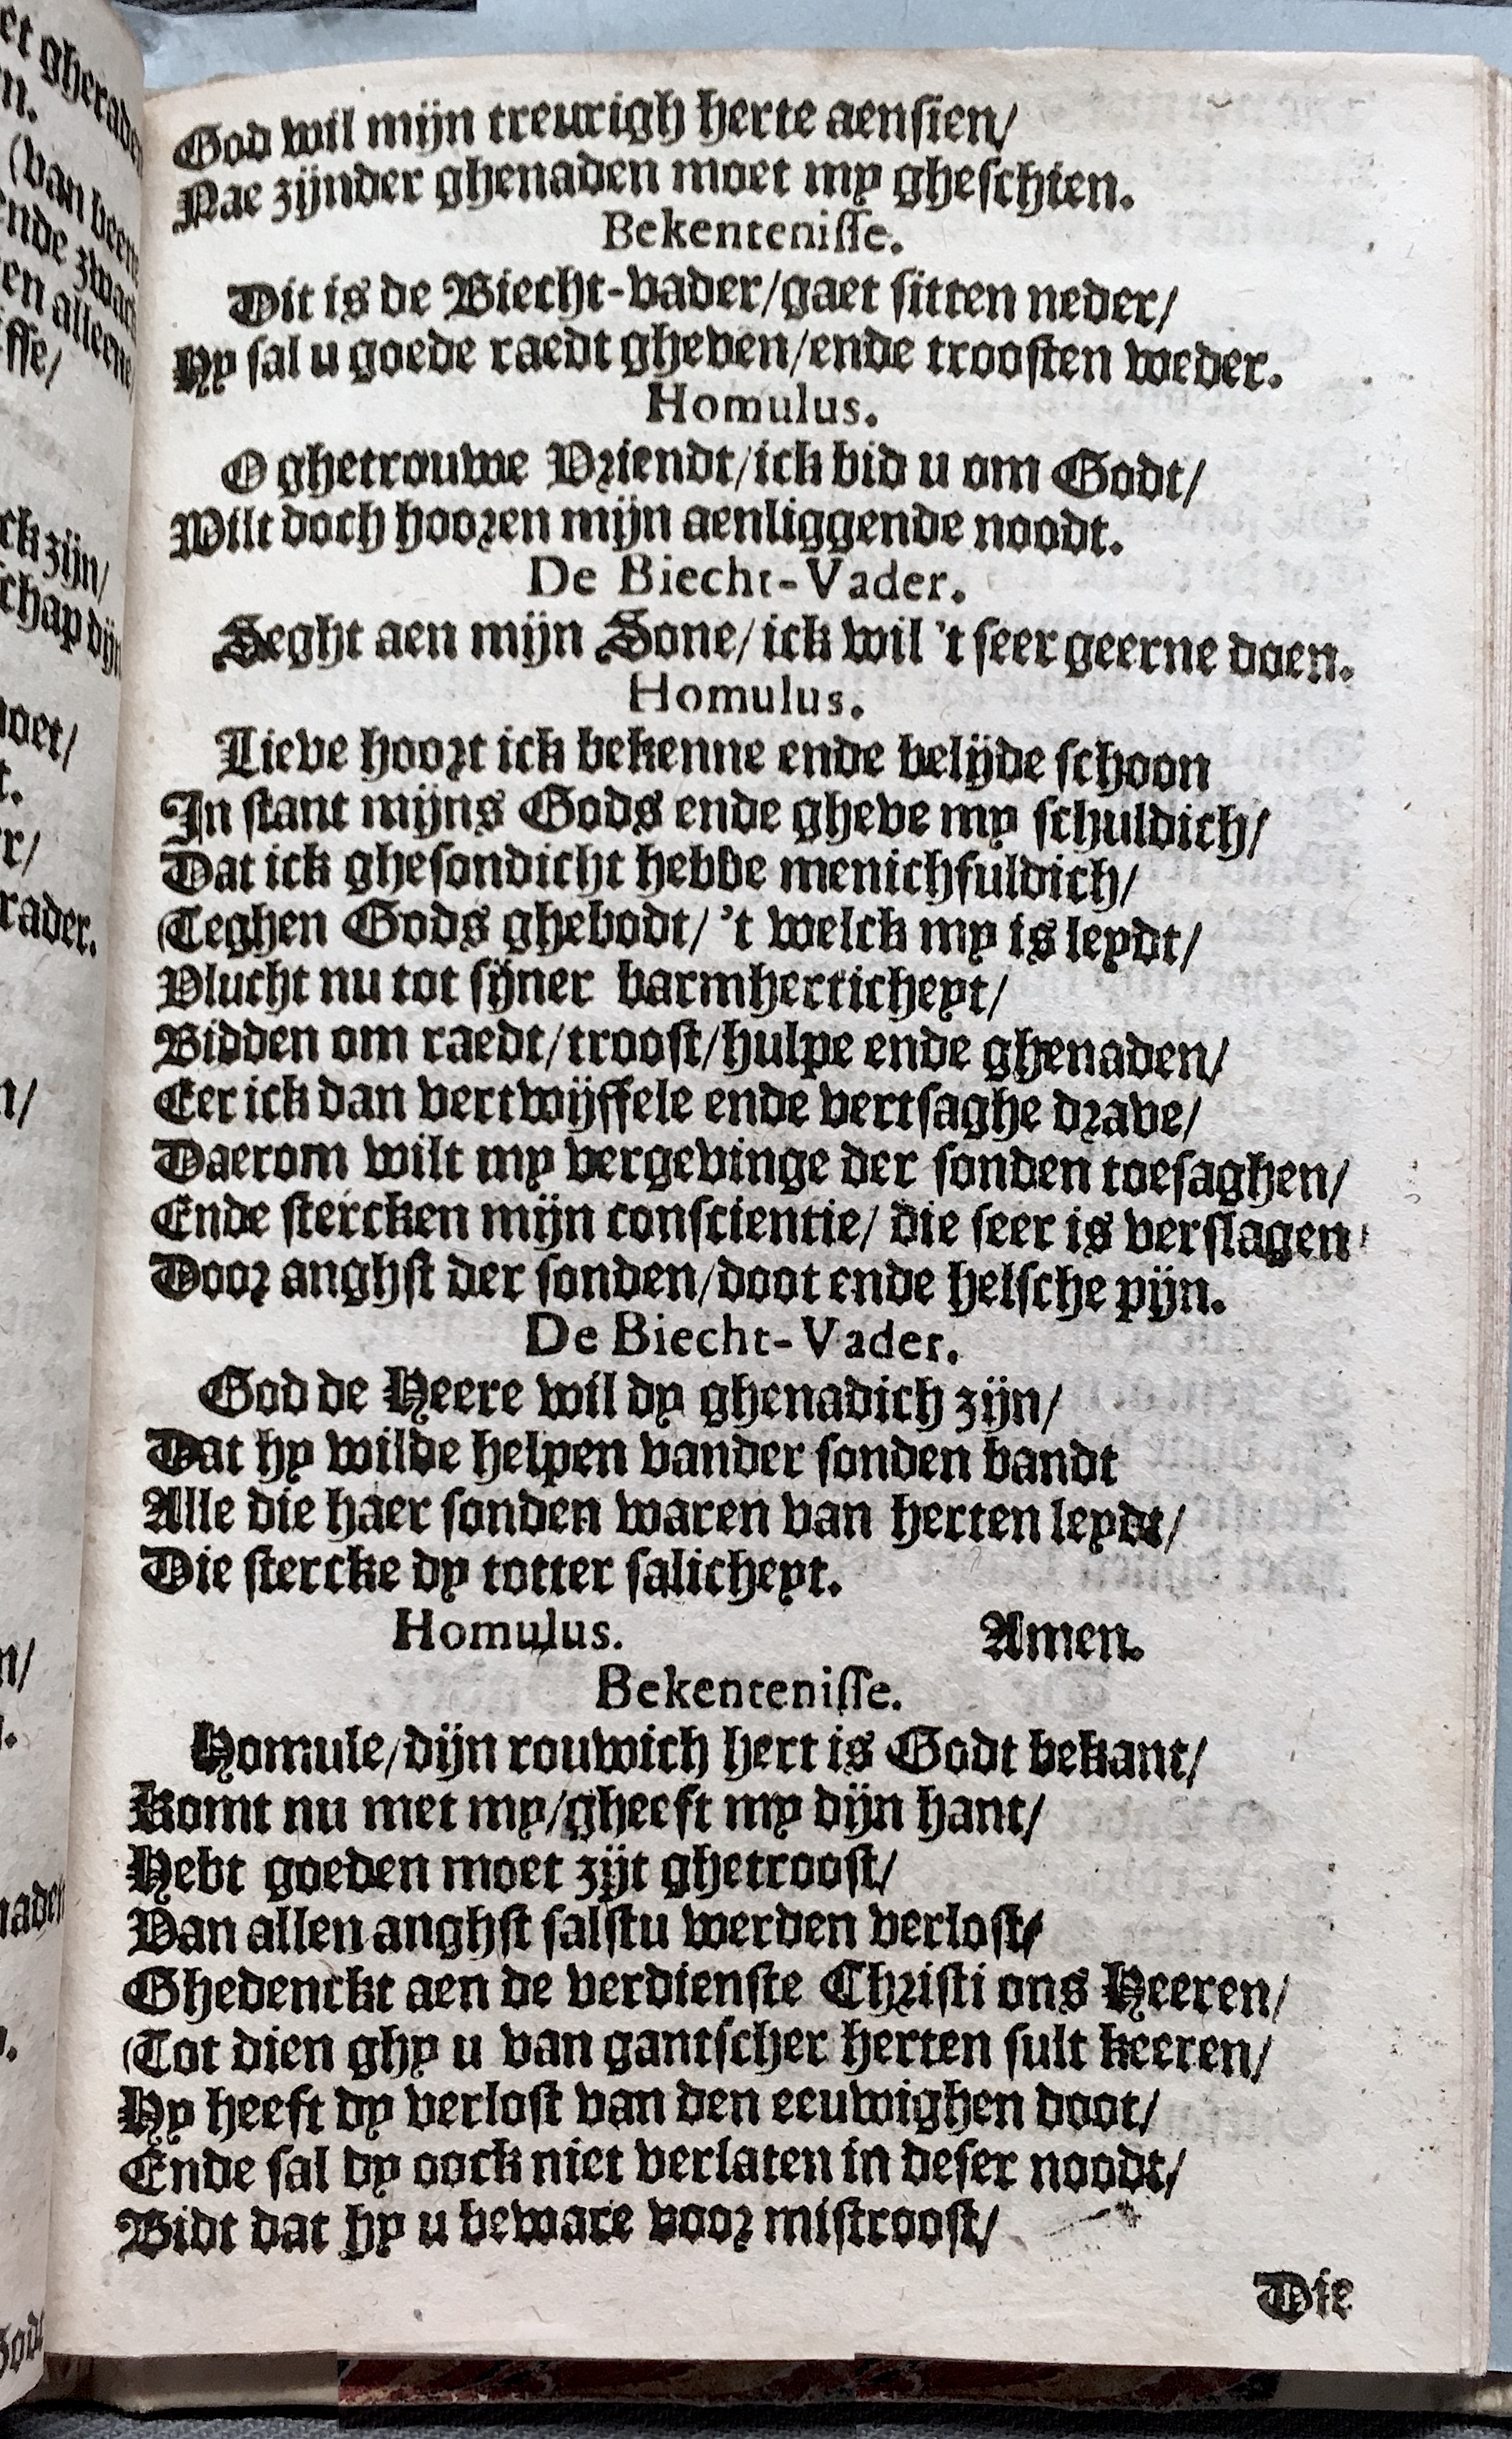 God wil mijn treurigh herte aensien/
Nae zijnder ghenaden moet my gheschien.
Bekentenisse.
Dit is de Biecht-vader/gaet sitten neder/
Hy sal u goede raedt gheven/ende troosten weder.
Homulus.
O ghetrouwe Vriendt/ick bid u om Godt/
Wilt doch hooren mijn aenliggende noodt.
De Biecht-Vader.
Seght aen mijn Sone/ick wil 't seer geerne doen.
Homulus.
Lieve hoort ick bekenne ende belijde schoon
In stant mijns Gods ende gheve my schuldich/
Dat ick ghesondicht hebbe menichfuldich/
Teghen Gods ghebodt/ 't welck my is leydt/
Vlucht nu tot sijner barmherticheyt/
Bidden om raedt/troost/hulpe ende ghenaden/
Eer ick dan vertwijffele ende vertsaghe drave/
Daerom wilt my vergevinge der sonden toesaghen/
Ende stercken mijn conscientie/ die seer is verslagen
Door anghst der sonden/doot ende helsche pijn.
De Biecht-Vader.
God de Heere wil dy ghenadich zijn/
Dat hy wilde helpen vander sonden bandt
Alle die haer sonden waren van herten leydt/
Die stercke dy totter salicheyt.
Homulus. Amen.
Bekentenisse.
Homule/dijn rouwich hert is Godt bekant/
Komt nu met my/gheeft my dijn hant/
Hebt goeden moet zijt ghetroost/
Van allen anghst salstu werden verlost/
Ghedenckt aen de verdienste Christi ons Heeren/
Tot dien ghy u van gantscher herten sult keeren/
Hy heeft dy verlost van den eeuwighen doot/
Ende sal dy oock niet verlaten in deser noodt/
Bidt dat hy u beware voor mistroost/
Die